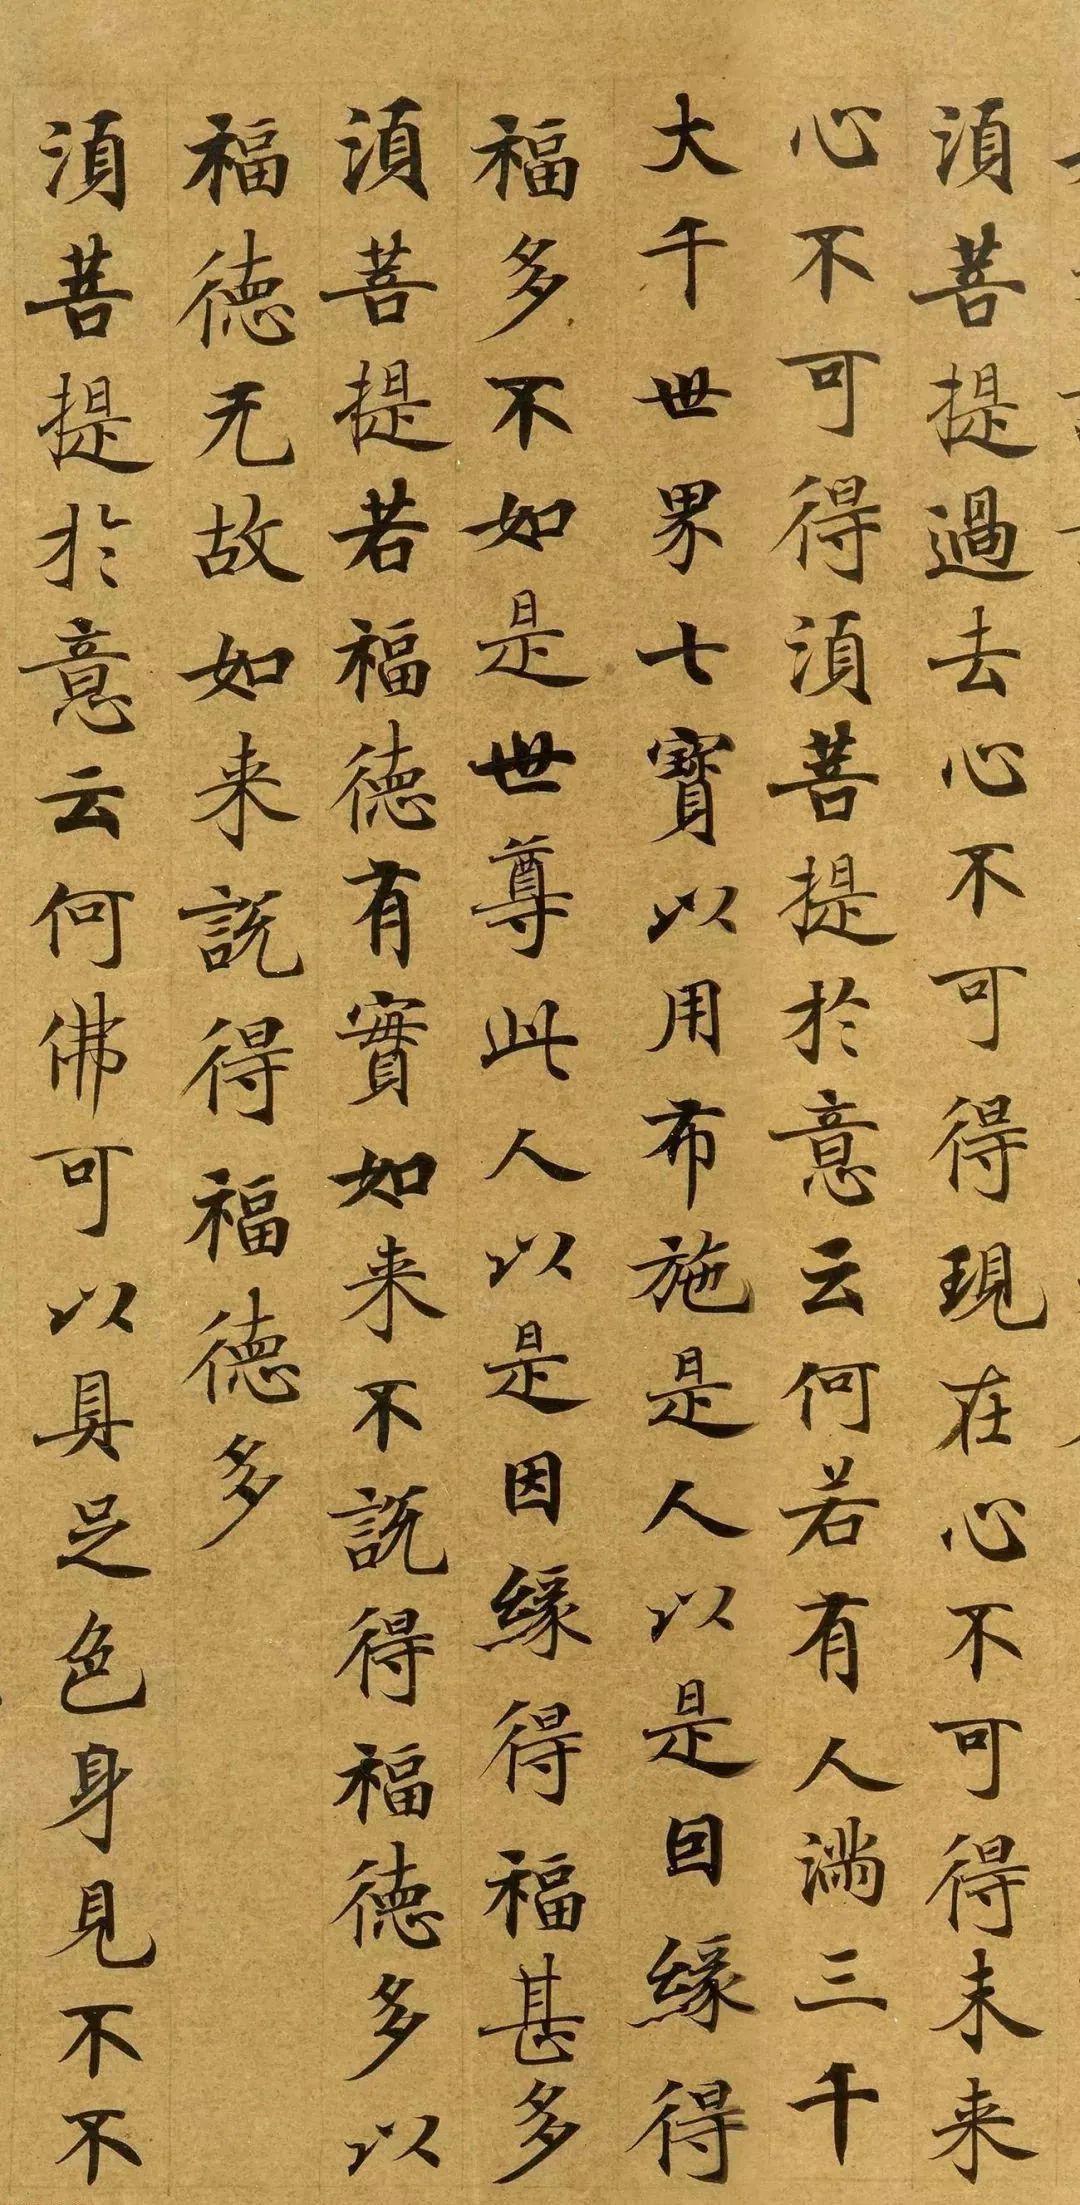 須菩提過去心不可得現在心不可得未来
心不可得須菩提於意云何若有人満三千
大千世界七寶以用布施是人以是因緣得
福多不如是世尊此人以是因緣得福甚多
須菩提若福德有實如来不說得福德多以
福德无故如来說得福德多
須菩提於意云何佛可以具足色身見不不